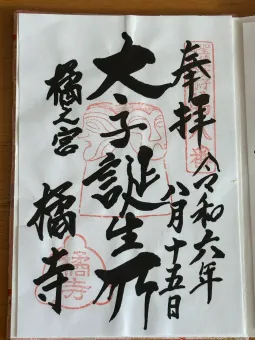 奉拝
令和六年
八月十五日
太子誕生所
橘之宮
橘寺
橘寺